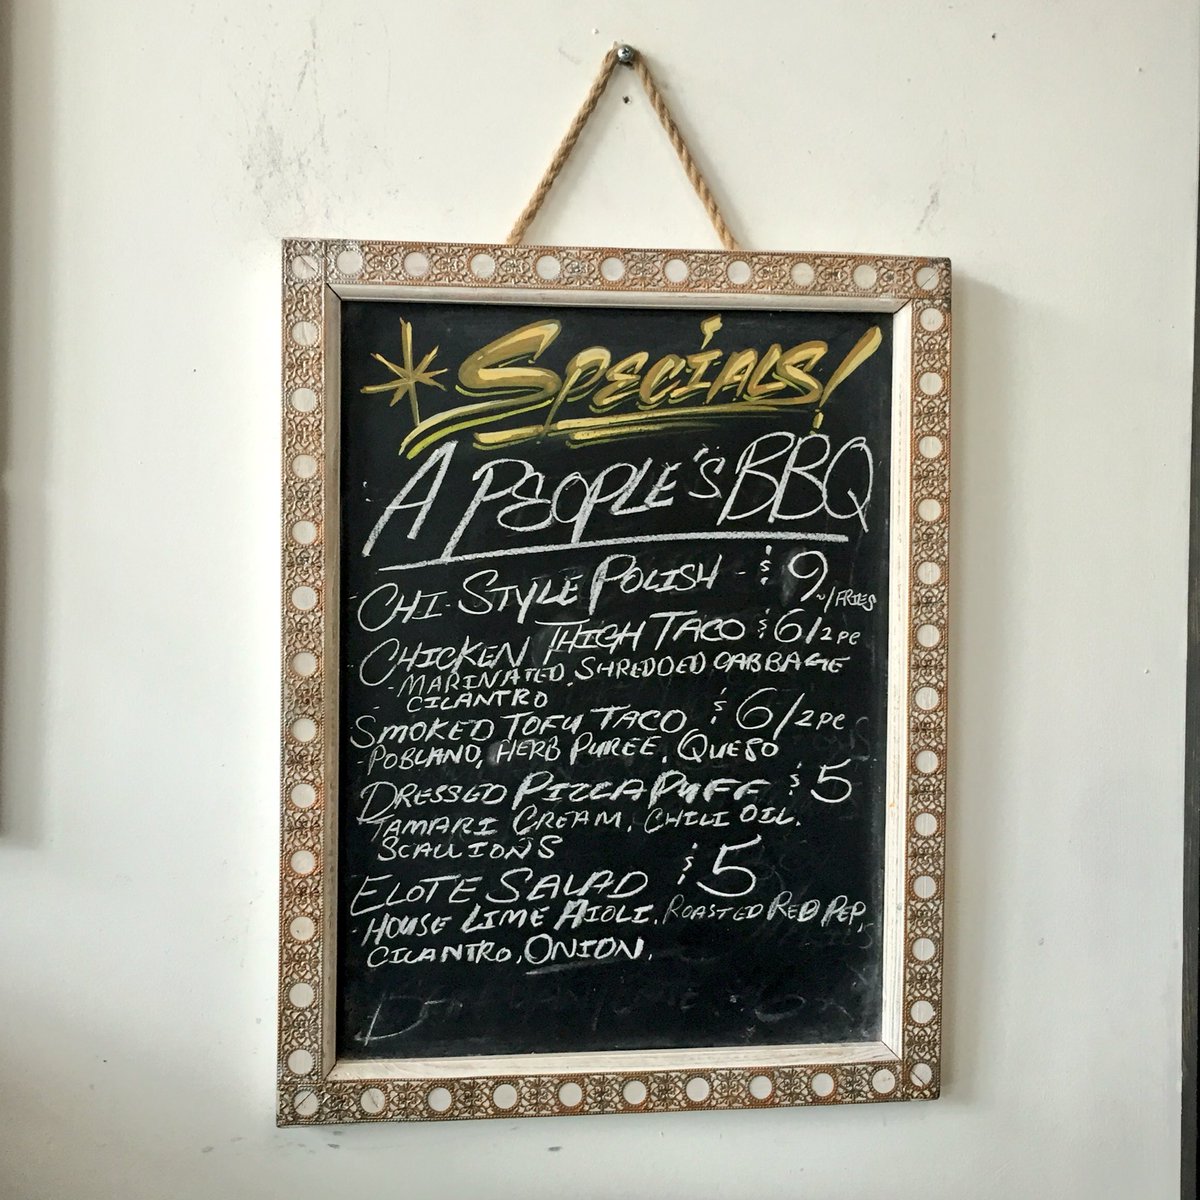 Specials!
A People's BBQ
Chi-Style Polish - $9
w/ Fries
Chicken Thigh Taco $6/2pc
- Marinated, Shredded Cabbage
- Cilantro
Smoked Tofu Taco $6/2pc
- Poblano, Herb Puree, Queso
Dressed Pizza Puff $5
Tamari Cream, Chili Oil,
Scallions
Elote Salad $5
- House Lime Aioli, Roasted Red Pep,
Cilantro, Onion.